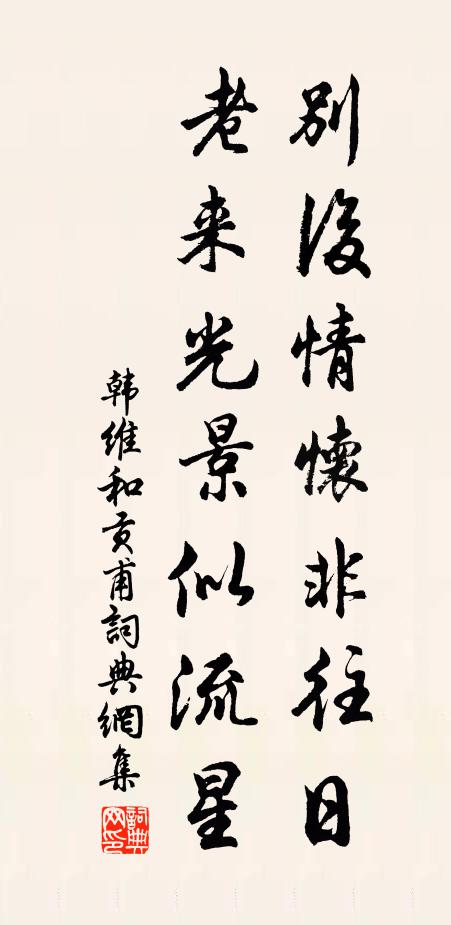 別後情懷非往日
老来光景似流星
韩维和贡甫詞典網集
詞典网印